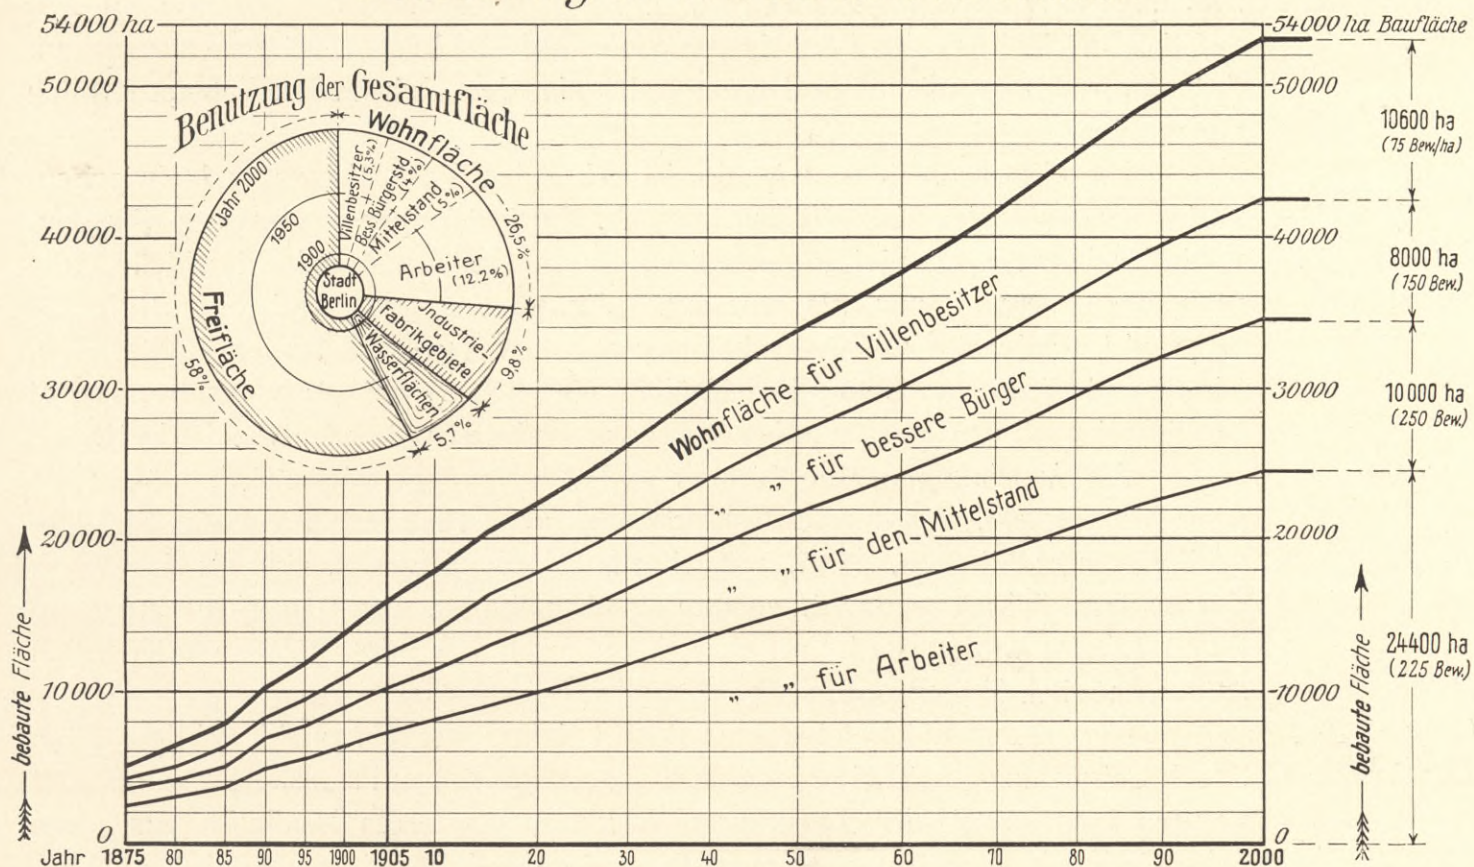 54000 ha
50000
40000
30000
20000
10000
0
bebaute Fläche
Benutzung der Gesamtfläche
Wohnfläche
26,5%
Villenbesitzer
(5,3%)
Bess. Bürgerstd.
(4%)
Mittelstand
(5%)
Arbeiter
(12.2%)
Industrie-
u
Fabrikgebiete
9,8%
Wasserflächen
5,7%
Freifläche
58%
Jahr 2000
1950
1900
Stadt
Berlin
Wohnfläche für Villenbesitzer
„ „ für bessere Bürger
„ „ für den Mittelstand
„ „ für Arbeiter
54000 ha Baufläche
50000
40000
30000
20000
10000
0
10600 ha
(75 Bew/ha)
8000 ha
(150 Bew.)
10000 ha
(250 Bew.)
24400 ha
(225 Bew.)
bebaute Fläche
Jahr 1875 80 85 90 95 1900 1905 10 20 30 40 50 60 70 80 90 2000